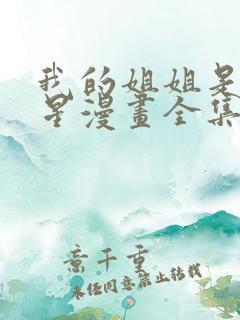 我的姐姐是
星漫畫全集
意千重
未經同意禁止轉載